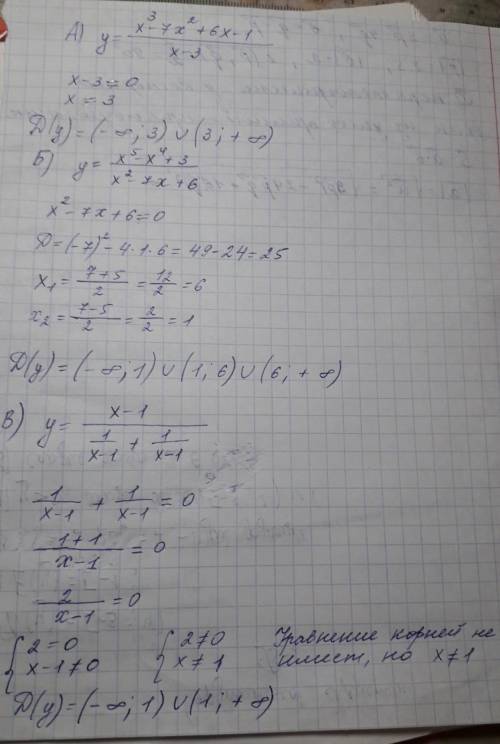 А) y = (x³-7x²+6x-1)/(x-3)
x-3=0
x = 3
D(y) = (-∞; 3) ∪ (3; +∞)
Б) y = (x⁵-x⁴+3)/(x²-7x+6)
x²-7x+6=0
D=(-7)²-4·1·6=49-24=25
x₁ = (7+5)/2 = 12/2 = 6
x₂ = (7-5)/2 = 2/2 = 1
D(y) = (-∞; 1) ∪ (1; 6) ∪ (6; +∞)
В) y = (x-1)/(1/(x-1) + 1/(x-1))
1/(x-1) + 1/(x-1) = 0
(1+1)/(x-1) = 0
2/(x-1) = 0
{2=0 {2≠0 Уравнение корней не
{x-1≠0 {x≠1 имеет, но x≠1
D(y) = (-∞; 1) ∪ (1; +∞)